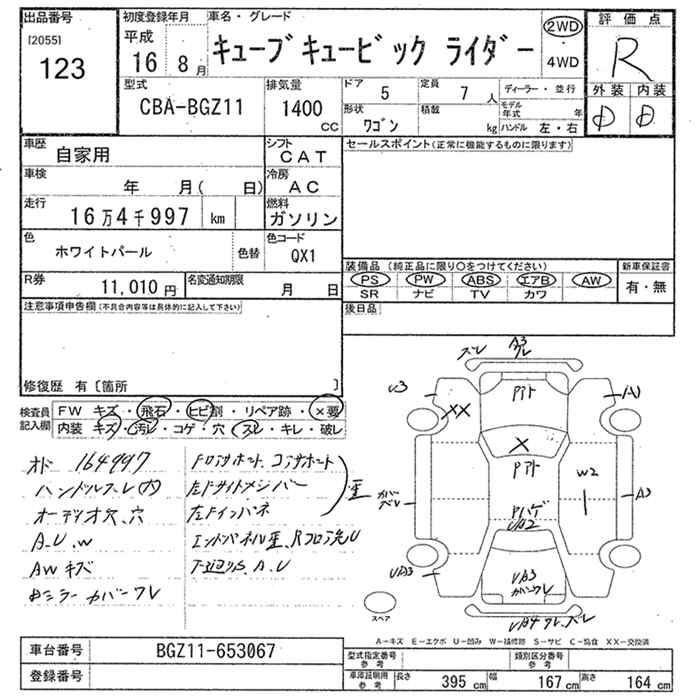 出品番号
[2055]
123
初度登録年月
平成
16 年 8 月
車名・グレード
キューブキュービック ライダー
2WD
4WD
評価点
R
外装 内装
D D
型式
CBA-BGZ11
排気量
1400 cc
ドア 5
定員 7 人
ディーラー・並行
形状 ワゴン
積載 kg
モデル年式 年
ハンドル 左・右
車歴 自家用
シフト CAT
車検 年 月( 日)
冷房 AC
走行 16万4千997 km
燃料 ガソリン
色 ホワイトパール
色替
色コード QX1
R券 11,010 円
名変通知期限 月 日
セールスポイント(正常に機能するものに限ります)
装備品 (純正品に限り○をつけてください)
新車保証書
PS PW ABS エアB AW
SR ナビ TV カワ
有・無
後日品
注意事項申告欄(不具合内容等は具体的に記入して下さい)
修復歴 有〔箇所 〕
検査員記入欄
FW キズ・飛石・ヒビ割・リペア跡・×要
内装 キズ・汚レ・コゲ・穴・スレ・キレ・破レ
オド 164997
ハンドルスレ(内)
オーディオ穴、穴
A.U.W
AWキズ
ミラーカバーワレ
FロアサポートコアサポートI
左Fサイドメンバー
左Fインパネ
歪
エンドパネル歪、Rフロア洗U
下廻りS、A.U
ズレ
A3
ワレ
U3
XX
Pアト
A1
X
Pアト
W2
カバーズレ
Pハゲ
UA2
A3
UA3
UA3
カバーワレ
UA4 ワレ、ズレ
スペア
A-キズ E-エクボ U-凹み W-補修跡 S-サビ C-腐食 XX-交換済
車台番号 BGZ11-653067
登録番号
型式指定番号 参考
類別区分番号 参考
車庫証明用 参考
長さ 395 cm
幅 167 cm
高さ 164 cm